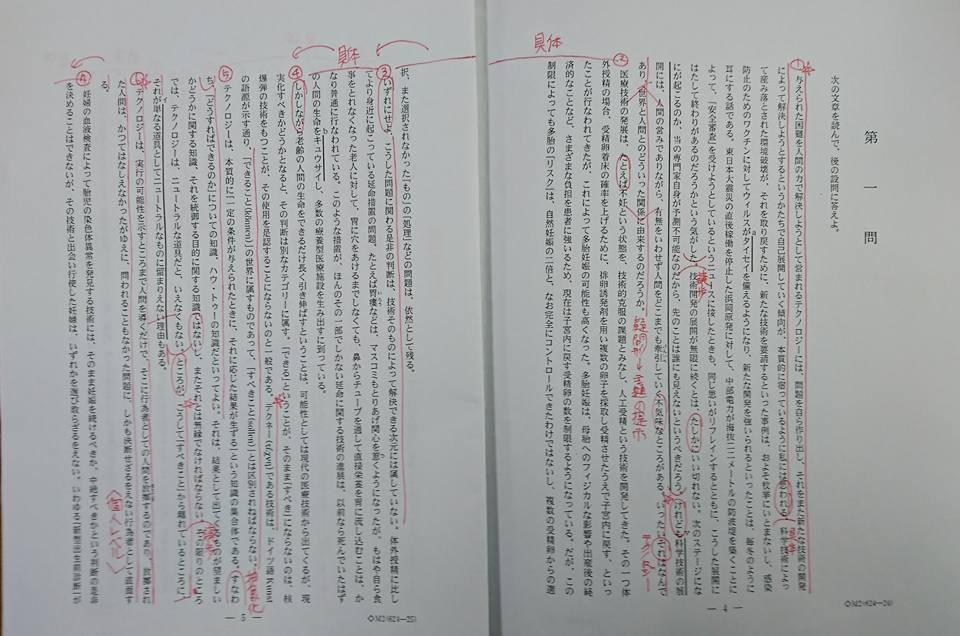 第一問
次の文章を読んで、後の設問に答えよ。
与えられた困難を人間の力で解決しようとして営まれるテクノロジーには、問題を自ら作り出し、それをまた新たな技術の開発
によって解決しようとするというかたちで自己展開していく傾向が、本質的に宿っているように私には思われる。科学技術によっ
て産み落とされた環境破壊が、それを取り戻すために、新たな技術を要請するといった事例は、およそ枚挙にいとまないし、感染
防止のためのワクチンに対してウィルスがタイセイを備えるようになり、新たな開発を強いられるといったことは、毎冬のように
耳にする話である。東日本大震災の直後稼働を停止した浜岡原発に対して、中部電力が海抜二二メートルの防波堤を築くことに
よって、「安全審査」を受けようとしているというニュースに接したときも、同じ思いがリフレインするとともに、こうした展開に
はたして終わりがあるのだろうかという気がした。技術開発の展開が無限に続くとは、たしかにいい切れない。次のステージにな
にが起こるのか、当の専門家自身が予測不可能なのだから、先のことは誰にも見えないというべきだろう。けれども科学技術の展
開には、人間の営みでありながら、有無をいわせず人間をどこまでも牽引していく不気味なところがある。いったいそれはなんで
あり、世界と人間とのどういった関係に由来するのだろうか。
医療技術の発展は、たとえば不妊という状態を、技術的克服の課題とみなし、人工受精という技術を開発してきた。その一つ体
外授精の場合、受精卵着床の確率を上げるために、排卵誘発剤を用い複数の卵子を採取し受精させたうえで子宮内に戻す、といっ
たことが行なわれてきたが、これによって多胎妊娠の可能性も高くなった。多胎妊娠は、母胎へのフィジカルな影響や出産後の経
済的なことなど、さまざまな負担を患者に強いるため、現在は子宮内に戻す受精卵の数を制限するようになっている。だが、この
制限によっても多胎の「リスク」は、自然妊娠の二倍と、なお完全にコントロールできたわけではないし、複数の受精卵からの選
— 4 —
◇M2(624—24)
択、また選択されなかった「もの」の「処理」などの問題は、依然として残る。
いずれにせよ、こうした問題に関わる是非の判断は、技術そのものによって解決できる次元には属していない。体外授精に比し
てより身近に起こっている延命措置の問題。たとえば胃瘻などは、マスコミもとりあげ関心を惹くようになったが、もはや自ら食
事をとれなくなった老人に対して、胃に穴をあけるまでしなくても、鼻からチューブを通して直接栄養を胃に流し込むことは、か
なり普通に行なわれている。このような措置が、ほんのその一部でしかない延命に関する技術の進展は、以前なら死んでいたはず
の人間の生命をキュウサイし、多数の療養型医療施設を生み出すに到っている。
しかしながら老齢の人間の生命をできるだけ長く引き伸ばすということは、可能性としては現代の医療技術から出てくるが、現
実化すべきかどうかとなると、その判断は別なカテゴリーに属す。「できる」ということが、そのまま「すべき」にならないのは、核
爆弾の技術をもつことが、その使用を是認することにならないのと一般である。テクネー(τέχνη)である技術は、ドイツ語 Kunst
の語源が示す通り、「できること(können)」の世界に属すものであって、「すべきこと(sollen)」とは区別されねばならない。
テクノロジーは、本質的に「一定の条件が与えられたときに、それに応じた結果が生ずる」という知識の集合体である。すなわ
ち、「どうすればできるのか」についての知識、ハウ・トゥーの知識だといってよい。それは、結果として出てくるものが望ましい
かどうかに関する知識、それを統御する目的に関する知識ではないし、またそれとは無縁でなければならない。その限りのところ
では、テクノロジーは、ニュートラルな道具だと、いえなくもない。ところが、こうして「すべきこと」から離れているところに、
それが単なる道具としてニュートラルなものに留まりえない理由もある。
テクノロジーは、実行の可能性を示すところまで人間を導くだけで、そこに行為者としての人間を放擲するのであり、放擲され
た人間は、かつてはなしえなかったがゆえに、問われることもなかった問題に、しかも決断せざるをえない行為者として直面す
る。
妊婦の血液検査によって胎児の染色体異常を発見する技術には、そのまま妊娠を続けるべきか、中絶すべきかという判断の是非
を決めることはできないが、その技術と出会い行使した妊婦は、いずれかを選び取らざるをえない。いわゆる「新型出生前診断」が
— 5 —
◇M2(624—25)
①
②
③
④
⑤
⑥
具体
具体
譲歩
疑問形→主題の提示
テクノロジー
譲歩
〈個人レベル〉